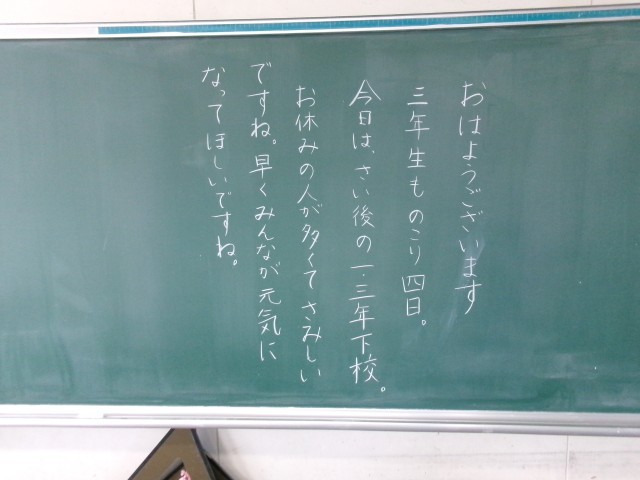 おはようございます
三年生ものこり四日。
今日は、さい後の一・三年下校。
お休みの人が多くてさみしい
ですね。早くみんなが元気に
なってほしいですね。